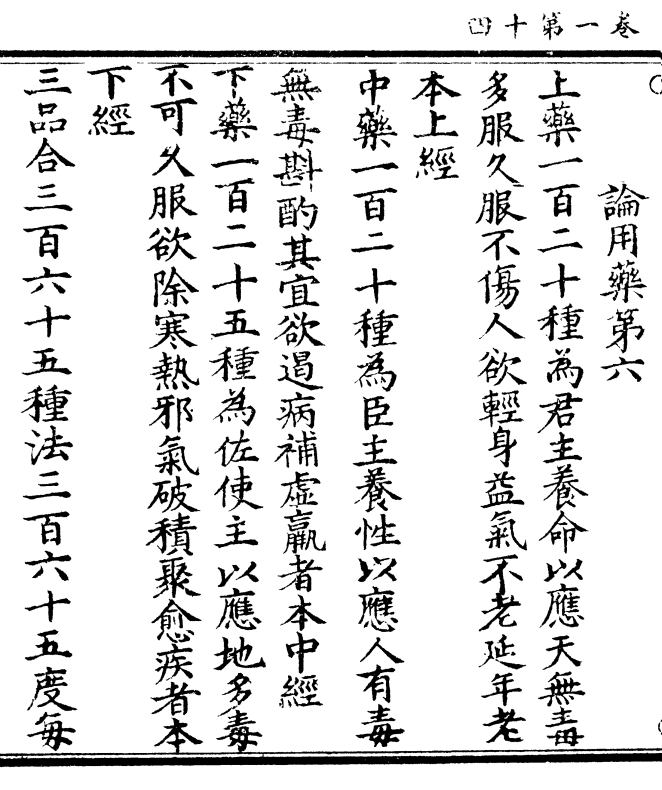 卷一第十四
論用藥第六
上藥一百二十種為君主養命以應天無毒
多服久服不傷人欲輕身益氣不老延年老
本上經
中藥一百二十種為臣主養性以應人有毒
無毒斟酌其宜欲遏病補虛羸者本中經
下藥一百二十五種為佐使主以應地多毒
不可久服欲除寒熱邪氣破積聚愈疾者本
下經
三品合三百六十五種法三百六十五度每